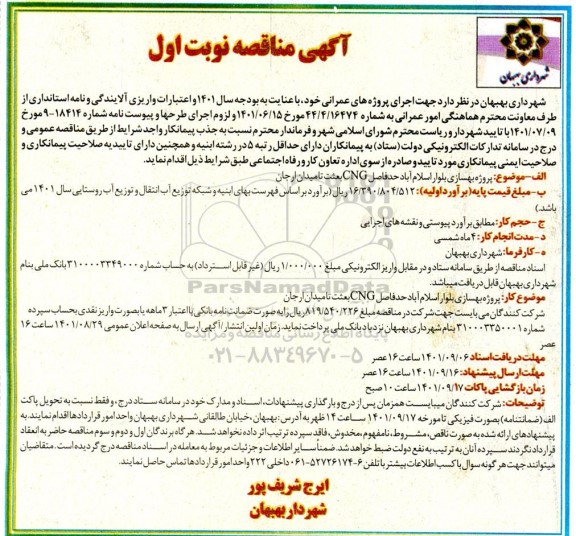 آگهی مناقصه نوبت اول
شهرداری بهبهان
شهرداری بهبهان در نظر دارد جهت اجرای پروژه های عمرانی خود، با عنایت به بودجه سال ۱۴۰۱ و اعتبارات واریزی آلایندگی و نامه استانداری از
طرف معاونت محترم هماهنگی امور عمرانی به شماره ۴۴/۴/۱۶۴۷۴ مورخ ۱۴۰۱/۰۶/۱۵ و لزوم اجرای طرحها و پیوست نامه شماره ۱۸۴۱۴-۹ مورخ
۱۴۰۱/۰۷/۰۹ با تایید شهردار و ریاست محترم شورای اسلامی شهر و فرماندار محترم نسبت به جذب پیمانکار واجد شرایط از طریق مناقصه عمومی و
درج در سامانه تدارکات الکترونیکی دولت (ستاد) به پیمانکاران دارای حداقل رتبه ۵ در رشته ابنیه و همچنین دارای تاییدیه صلاحیت پیمانکاری و
صلاحیت ایمنی پیمانکاری مورد تایید و صادره از سوی اداره تعاون کار و رفاه اجتماعی طبق شرایط ذیل اقدام نماید.
الف-موضوع: پروژه بهسازی بلوار اسلام آباد حدفاصل CNG بعثت تا میدان ارجان
ب-مبلغ قیمت پایه (برآورد اولیه): ۱۶/۳۹۰/۸۰۴/۵۱۲ ریال (برآورد بر اساس فهرست بهای ابنیه و شبکه توزیع آب انتقال و توزیع آب روستایی سال ۱۴۰۱ می
باشد.)
ج-حجم کار: مطابق برآورد پیوستی و نقشه های اجرایی
د-مدت انجام کار: ۴ ماه شمسی
ه-کارفرما: شهرداری بهبهان
اسناد مناقصه از طریق سامانه ستاد و در مقابل واریز الکترونیکی مبلغ ۱/۰۰۰/۰۰۰ ریال (غیر قابل استرداد) به حساب شماره ۳۱۰۰۰۰۳۳۴۹۰۰۰ بانک ملی بنام
شهرداری بهبهان قابل دریافت میباشد.
موضوع کار: پروژه بهسازی بلوار اسلام آباد حدفاصل CNG بعثت تا میدان ارجان
شرکت کنندگان می بایست جهت شرکت در مناقصه مبلغ ۸۱۹/۵۴۰/۲۲۶ ریال را به صورت ضمانت نامه بانکی با اعتبار ۳ ماهه یا بصورت واریز نقدی بحساب سپرده
شماره ۳۱۰۰۰۰۳۳۵۰۰۰۱ بنام شهرداری بهبهان نزد باد بانک ملی پرداخت نماید. زمان اولین انتشار / آگهی ارسال به صفحه اعلان عمومی ۱۴۰۱/۰۸/۲۹ ساعت ۱۶
عصر
مهلت دریافت اسناد ۱۴۰۱/۰۹/۰۶ ساعت ۱۶ عصر
مهلت ارسال پیشنهاد: ۱۴۰۱/۰۹/۱۶ ساعت ۱۶ عصر
زمان بازگشایی پاکات ۱۴۰۱/۰۹/۱۷ ساعت ۱۰ صبح
توضیحات: شرکت کنندگان میبایست همزمان پس از درج و بارگذاری پیشنهادات، اسناد و مدارک خود در سامانه ستاد درج، و فقط نسبت به تحویل پاکت
الف (ضمانتنامه) بصورت فیزیکی تا مورخه ۱۴۰۱/۰۹/۱۷ ساعت ۱۴ ظهر به آدرس: بهبهان، خیابان طالقانی شهرداری بهبهان واحد امور قراردادها اقدام نمایند. به
پیشنهادهای ارائه شده به صورت ناقص، مشروط، نامفهوم، مخدوش، فاقد سپرده ترتیب اثر داده نخواهد شد. هر گاه برندگان اول و دوم و سوم مناقصه حاضر به انعقاد
قرارداد نگردند سپرده آنان به ترتیب به نفع دولت ضبط خواهد شد. ضمناً سایر اطلاعات و جزئیات مربوط به معامله در اسناد مناقصه درج گردیده است. متقاضیان
میتوانند جهت هر گونه سوال یا کسب اطلاعات بیشتر با تلفن ۶-۰۶۱۵۲۷۲۶۱۷۴ داخلی ۲۲۲ واحد امور قراردادها تماس حاصل نمایند.
ایرج شریف پور
شهردار بهبهان
ParsNamadData
پایگاه اطلاع رسانی مناقصه و مزایده
۰۲۱-۸۸۳۴۹۶۷۰-۵